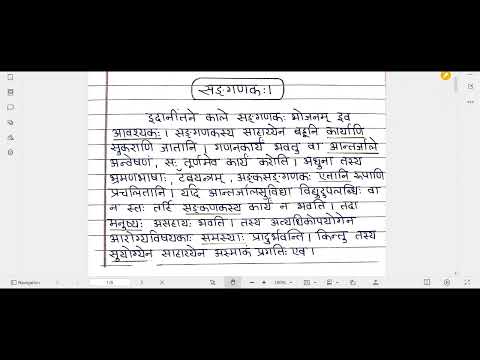 सङ्गणकः।
इदानींतने काले सङ्गणकः भोजनम् इव
आवश्यकः। सङ्गणकस्य साहाय्येन बहूनि कार्याणि
सुकराणि जातानि। गणनकार्यं भवतु वा आन्तर्जाले
अन्वेषणं, सः तूर्णमेव कार्यं करोति। अधुना तस्य
भ्रमणभाषः, टॅबयन्त्रम्, अङ्कसङ्गणकः एतानि रूपाणि
प्रचलितानि। यदि आन्तर्जालसुविधा विद्युदुपलब्धिः वा
न स्तः तर्हि सङ्कणकस्य कार्यं न भवति। तदा
मनुष्यः असहायः भवति। तस्य अत्यधिकोपयोगेन
आरोग्यविषयकाः समस्याः प्रादुर्भवन्ति। किन्तु तस्य
सुयोग्येन साहाय्येन अस्माकं प्रगतिः एव।
Navigation 1/6 100%